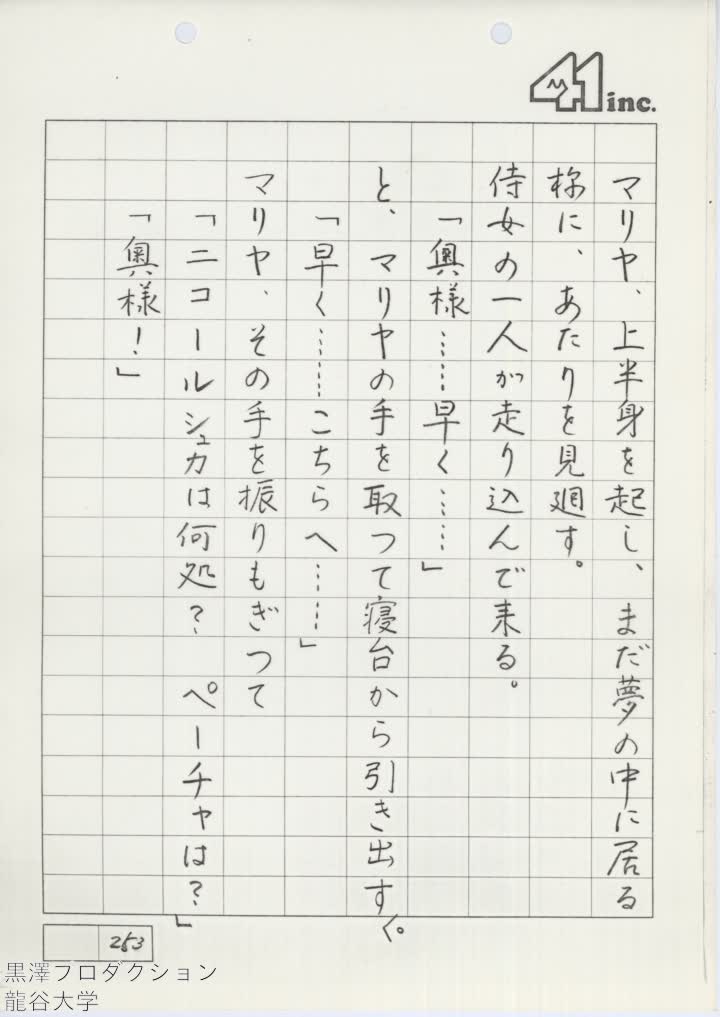 41 inc.
マリヤ、上半身を起し、まだ夢の中に居る
様に、あたりを見廻す。
侍女の一人が走り込んで来る。
「奥様……早く……」
と、マリヤの手を取つて寝台から引き出す。
「早く………こちらへ……」
マリヤ、その手を振りもぎつて
「ニコールシュカは何処？　ペーチャは？」
「奥様！」
253
黒澤プロダクション
龍谷大学